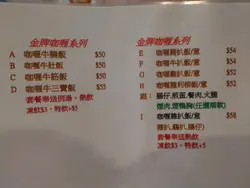 金牌咖喱系列
A 咖喱牛腩飯 $50
B 咖喱牛肚飯 $50
C 咖喱牛筋飯 $50
D 咖喱牛三寶飯 $55
套餐奉送例湯,熱飲
凍飲$3,特飲+$5
金牌咖喱系列
E 咖喱豬扒飯/意 $54
F 咖喱牛扒飯/意 $54
G 咖喱雞扒飯/意 $54
H 咖喱豬利柳飯/意 $52
跟:腸仔,煎蛋,餐肉,火腿
煙肉,煙鴨胸(任選兩款)
I 咖喱雜扒飯/意 $58
(豬扒,雞扒,腸仔)
套餐奉送熱飲
凍飲$3,特飲+5